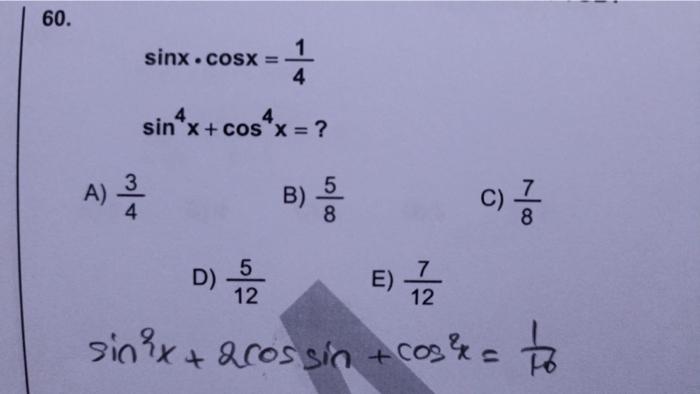 60.
sinx • cosx = 1/4
sin⁴x + cos⁴x = ?
A) 3/4 B) 5/8 C) 7/8
D) 5/12 E) 7/12
sin²x + 2cos sin + cos²x = 1/16